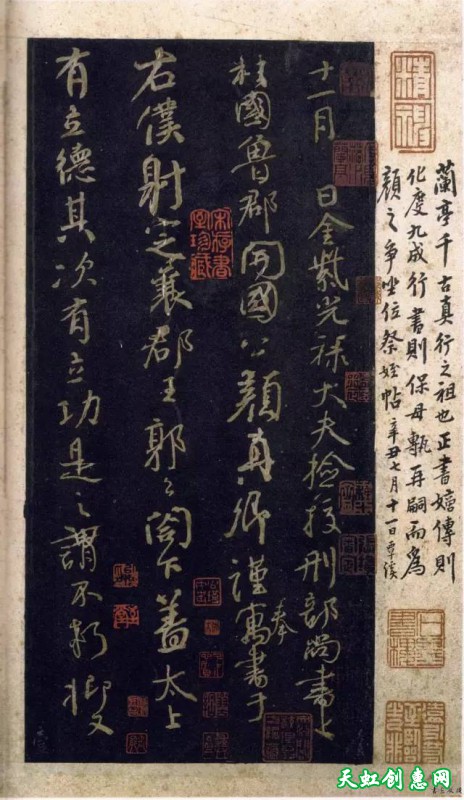 蘭亭千古真行之祖也正書嫡傳則
化度九成行書則保母甎再嗣而為
顏之爭坐位祭姪帖 辛丑七月十一日覃溪
十一月 日金紫光祿大夫檢挍刑部尚書上
柱國魯郡開國公顏真卿謹奉寓書于
右僕射定襄郡王郭公閤下蓋太上
有立德其次有立功是之謂不朽抑又
宋存書室珍藏
天虹创惠网